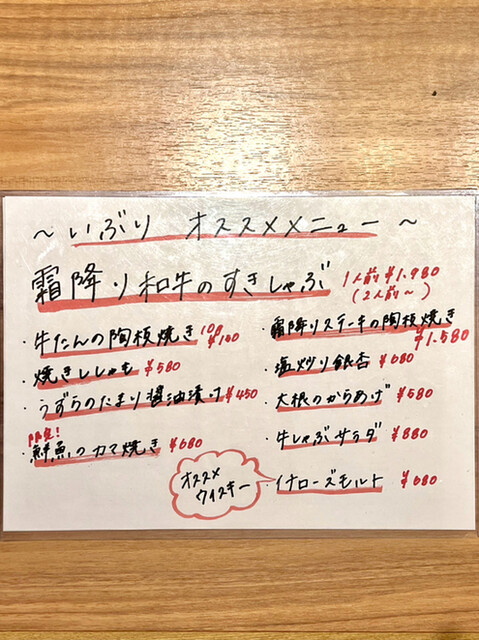 ～いぶり オススメメニュー～
霜降り和牛のすきしゃぶ 1人前 ¥1,980
(2人前～)
・牛たんの陶板焼き
・焼きししゃも ¥580
・うずらのたまり醤油漬け ¥450
限定!
・鮮魚のカマ焼き ¥680
・霜降りステーキの陶板焼き
¥1,580
・塩炒り銀杏 ¥680
・大根のからあげ ¥580
・牛しゃぶサラダ ¥880
オススメ
ウイスキー
・イチローズモルト ¥680